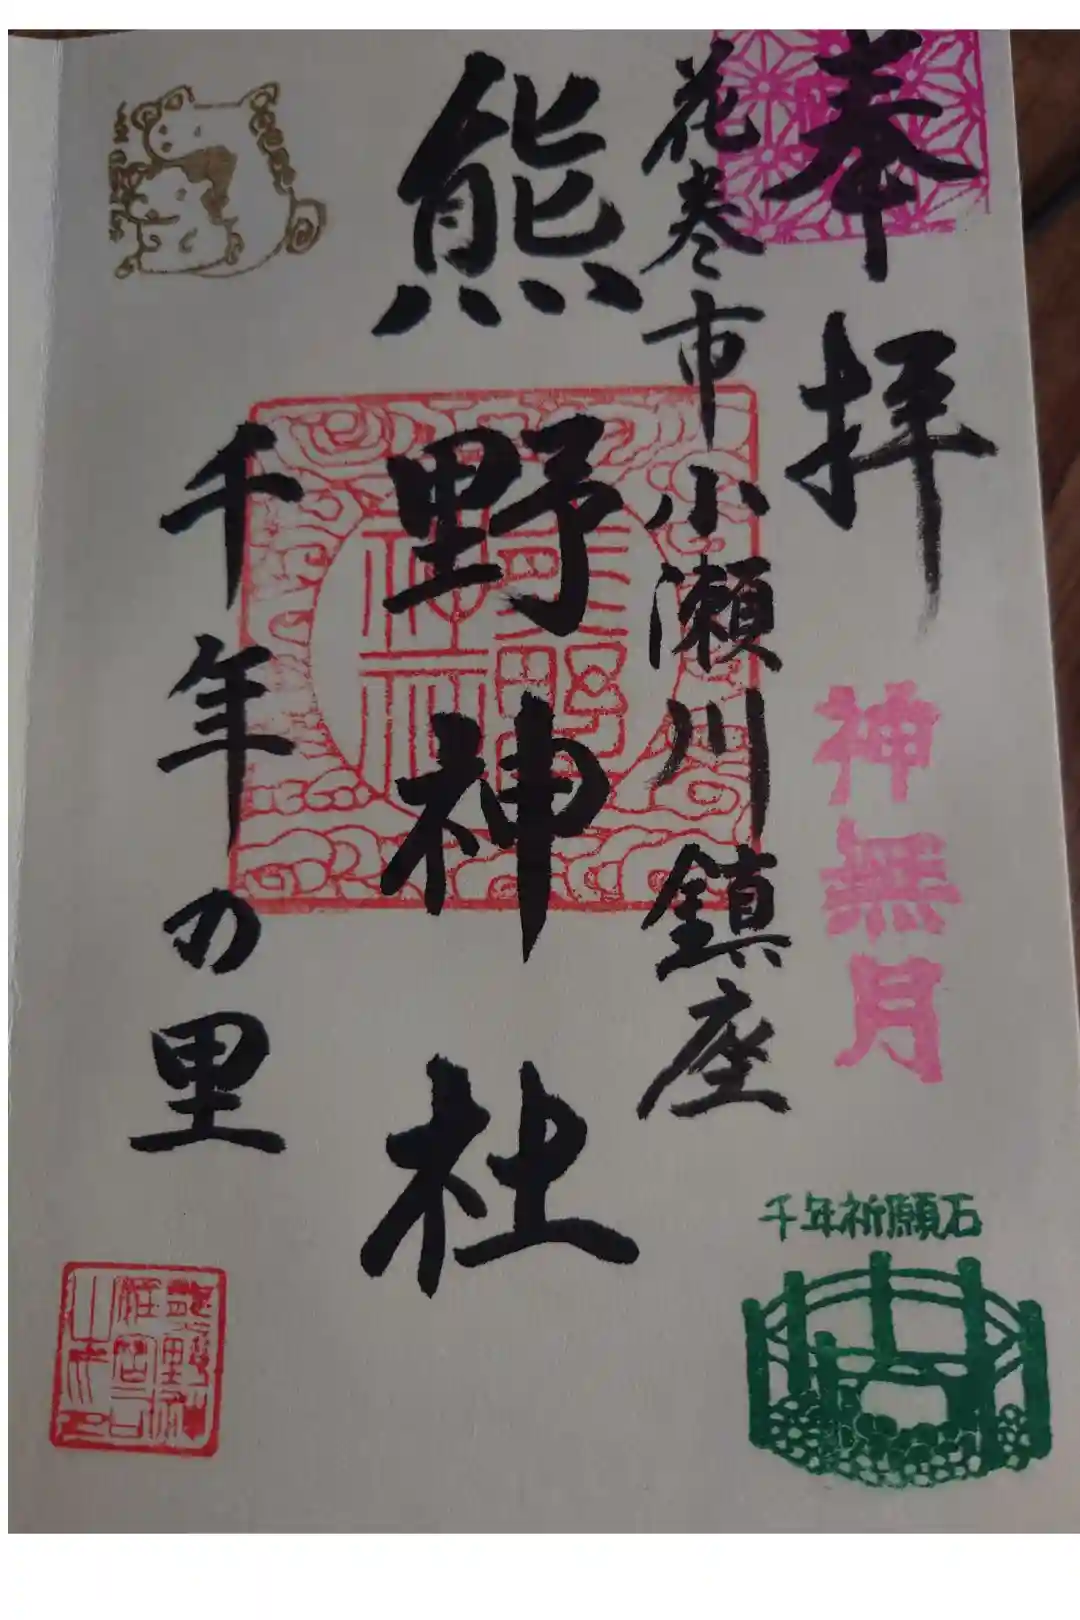 奉拝
神無月
千年祈願石
花巻市小瀬川鎮座
熊野神社
千年の里